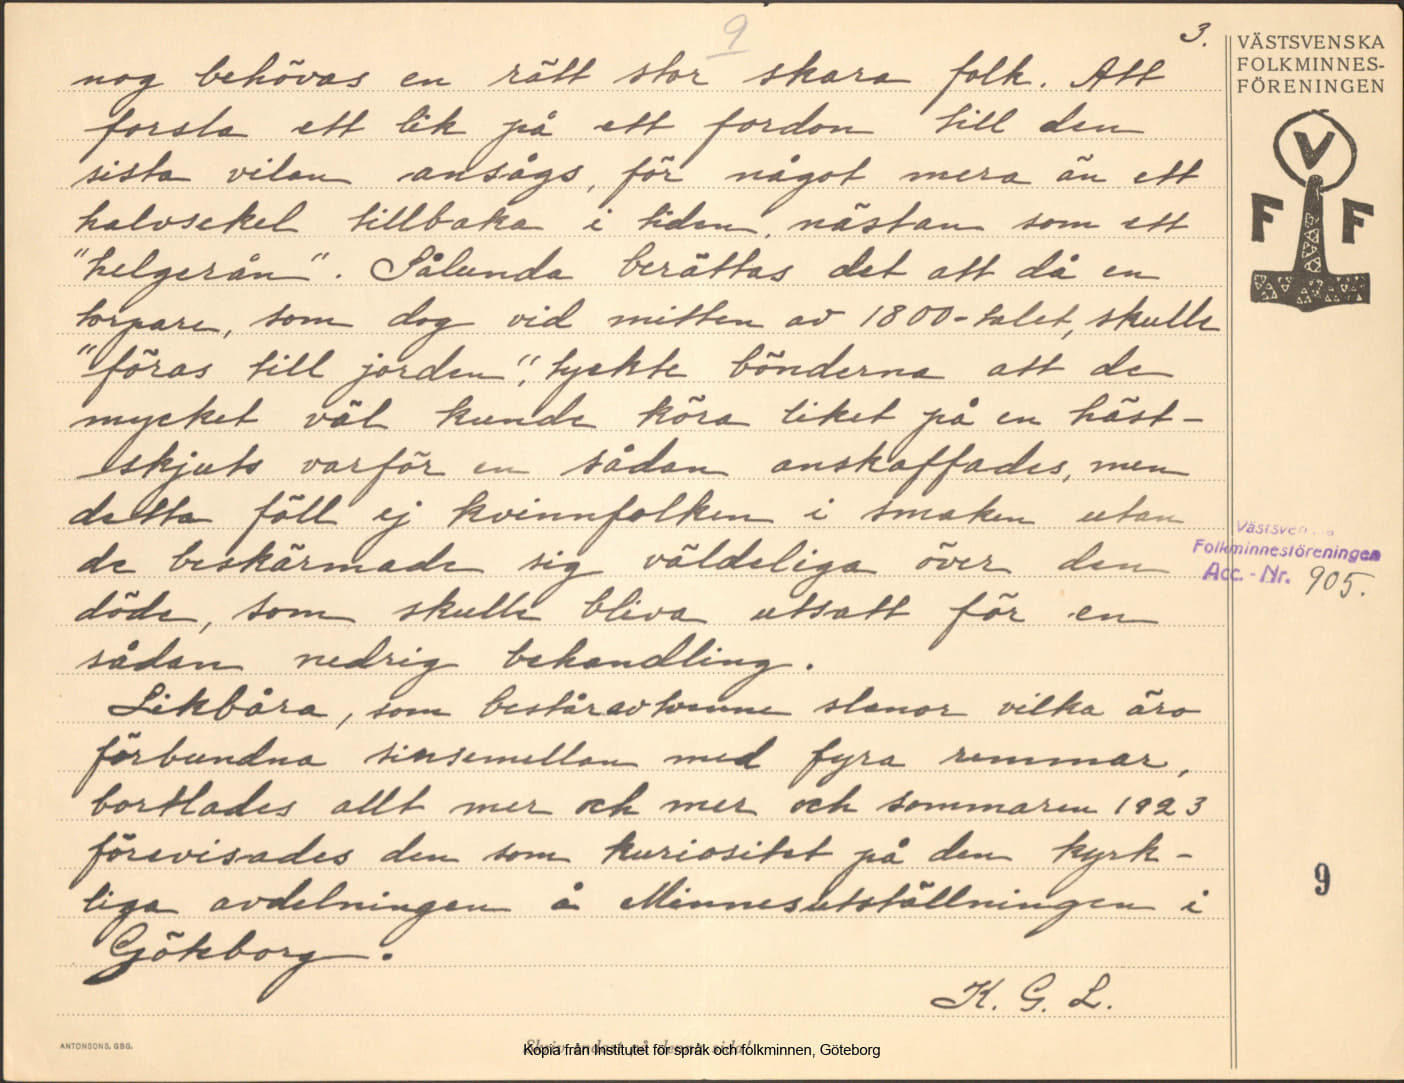 9
3.
nog behövas en rätt stor skara folk. Att
forsla ett lik på ett fordon till den
sista vilan ansågs, för något mera än ett
halvsekel tillbaka i tiden, nästan som ett
"helgerån". Sålunda berättas det att då en
torpare, som dog vid mitten av 1800-talet, skulle
"föras till jorden", tyckte bönderna att de
mycket väl kunde köra liket på en häst-
skjuts varför en sådan anskaffades, men
detta föll ej kvinnfolken i smaken utan
de beskärmade sig väldeliga över den
döde, som skulle bliva utsatt för en
sådan nedrig behandling.
Likbåra, som består av tvenne stänor vilka äro
förbundna sinsemellan med fyra remmar,
bortlades allt mer och mer och sommaren 1923
förevisades den som kuriositet på den kyrk-
liga avdelningen å Minnesutställningen i
Göteborg.
K. G. L.
VÄSTSVENSKA
FOLKMINNES-
FÖRENINGEN
V
F F
Västsvenska
Folkminnesföreningen
Acc.-Nr. 905.
9
ANTONSONS, GBG.
Skriv endast på denna sida!
Kopia från Institutet för språk och folkminnen, Göteborg